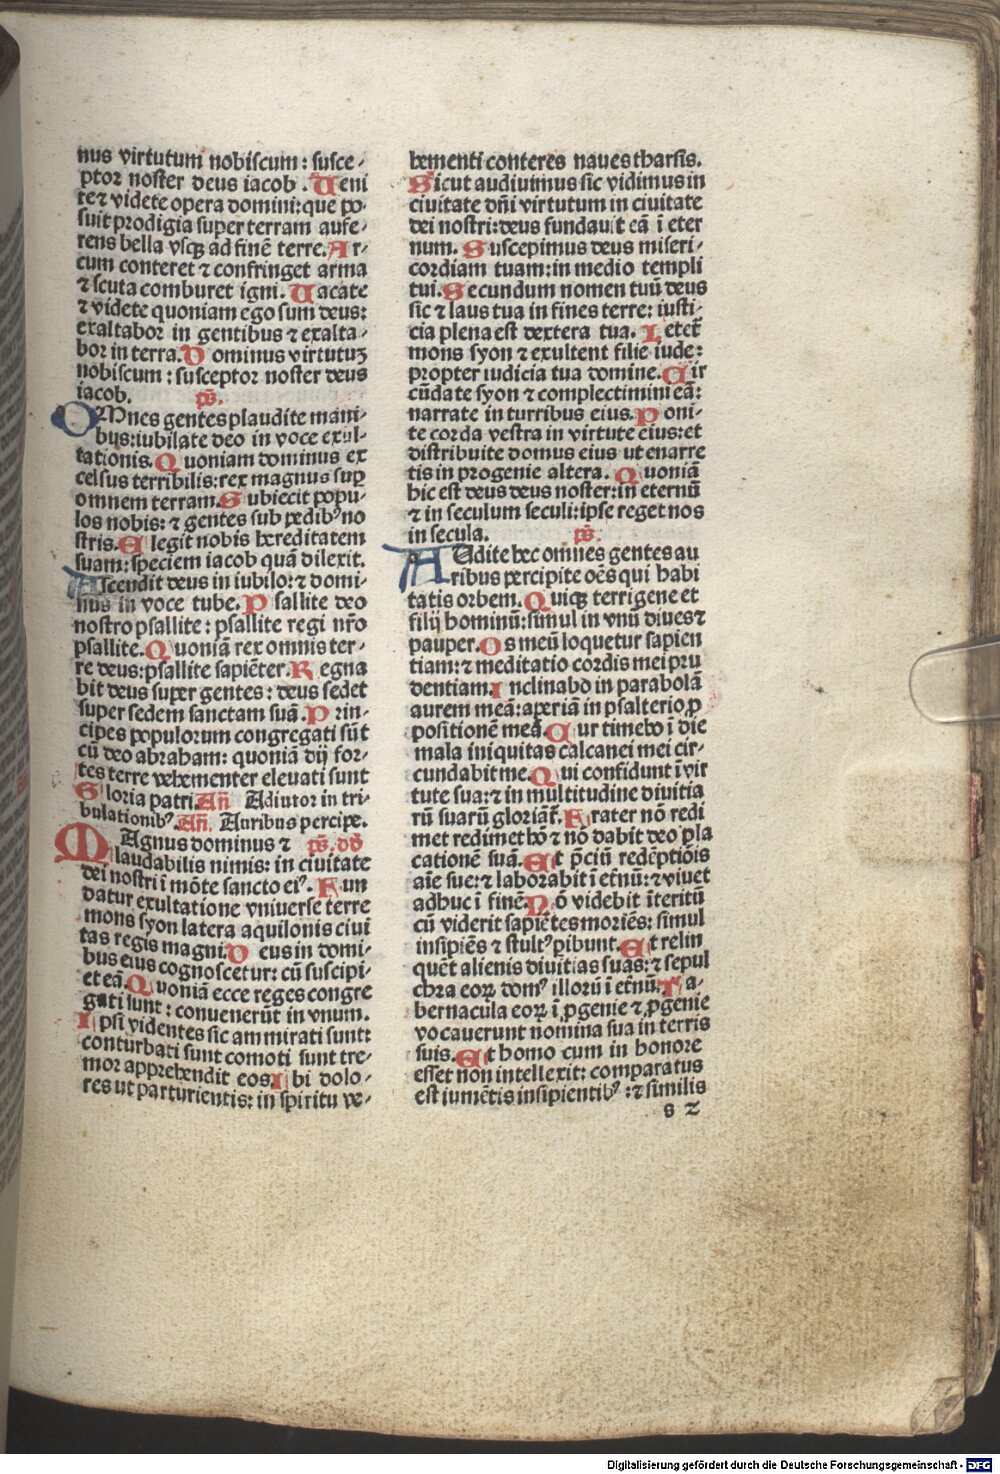 nus virtutum nobiscum : susce-
ptor noster deus iacob . Ueni
te ⁊ videte opera domini: que po-
suit prodigia super terram aufe-
rens bella vsqꝫ ad finē terre. Ar-
cum conteret ⁊ confringet arma
⁊ scuta comburet igni. Uacate
⁊ videte quoniam ego sum deus:
exaltabor in gentibus ⁊ exalta-
bor in terra. Dominus virtutuꝫ
nobiscum : susceptor noster deus
iacob. ps̄.
OMnes gentes plaudite mani-
bus: iubilate deo in voce exul-
tationis. Quoniam dominus ex
celsus terribilis: rex magnus suꝑ
omnem terram. Subiecit popu-
los nobis: ⁊ gentes sub pedibꝰ no
stris. Elegit nobis hereditatem
suam: speciem iacob quā dilexit.
Ascendit deus in iubilo: ⁊ domi-
nus in voce tube. Psallite deo
nostro psallite : psallite regi nr̄o
psallite. Quoniā rex omnis ter-
re deus: psallite sapiēter. Regna
bit deus super gentes : deus sedet
super sedem sanctam suā. Prin-
cipes populorum congregati sūt
cū deo abraham: quoniā dij for-
tes terre vehementer eleuati sunt
Gloria patri. Añ Adiutor in tri-
bulationibꝰ. Añ. Auribus percipe.
MAgnus dominus ⁊ ps̄. dd
laudabilis nimis: in ciuitate
dei nostri ī mōte sancto eiꝰ. Fun
datur exultatione vniuerse terre
mons syon latera aquilonis ciui
tas regis magni. Deus in domi-
bus eius cognoscetur: cū suscipi-
et eā. Quoniā ecce reges congre
gati sunt : conuenerūt in vnum.
Ipsi videntes sic ammirati suntt
conturbati sunt comoti sunt tre-
mor apprehendit eos. Ibi dolo-
res ut parturientis: in spiritu ve-
hementi conteres naues tharsis.
Sicut audiuimus sic vidimus in
ciuitate dñi virtutum in ciuitate
dei nostri: deus fundauit eā ī eter
num. Suscepimus deus miseri-
cordiam tuam: in medio templi
tui. Secundum nomen tuū deus
sic ⁊ laus tua in fines terre: iusti-
cia plena est dextera tua. Letet̄
mons syon ⁊ exultent filie iude:
propter iudicia tua domine. Cir
cūdate syon ⁊ complectimini eā:
narrate in turribus eius. Poni-
te corda vestra in virtute eius: et
distribuite domus eius ut enarre
tis in progenie altera. Quoniā
hic est deus deus noster: in eternū
⁊ in seculum seculi: ipse reget nos
in secula. ps̄.
AUdite hec omnes gentes au
ribus percipite oēs qui habi
tatis orbem. Quiqꝫ terrigene et
filij hominū: simul in vnū diues ⁊
pauper. Os meū loquetur sapien
tiam: ⁊ meditatio cordis mei pru
dentiam. Inclinabo in parabolā
aurem meā: aperiā in psalterio ꝓ
positionē meā. Cur timebo ī die
mala iniquitas calcanei mei cir-
cundabit me. Qui confidunt ī vir
tute sua: ⁊ in multitudine diuitia
rū suarū gloriāt̄. Frater nō redi
met redimet hō ⁊ nō dabit deo pla
cationē suā. Et p̄ciū redēptiōis
aīe sue: ⁊ laborabit ī et̄nū: ⁊ viuet
adhuc ī finē. Nō videbit īteritū
cū viderit sapiētes moriēs: simul
insipiēs ⁊ stultꝰ ꝑibunt. Et relin
quēt alienis diuitias suas: ⁊ sepul
chra eoꝝ domꝰ illorū ī et̄nū. Ta-
bernacula eoꝝ ī ꝓgenie ⁊ ꝓgenie
vocauerunt nomina sua in terris
suis. Et homo cum in honore
esset non intellexit: comparatus
est iumētis insipientibꝰ : ⁊ similis
s 2
Digitalisierung gefördert durch die Deutsche Forschungsgemeinschaft - DFG